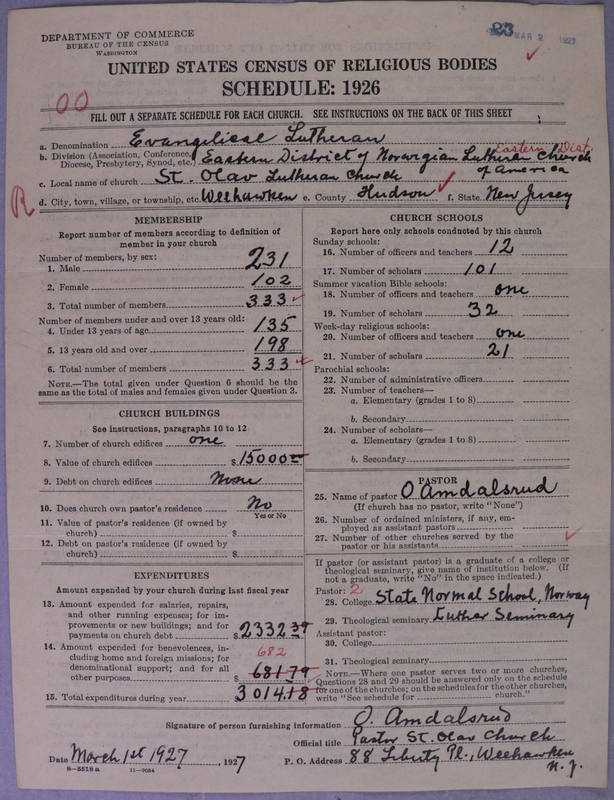 DEPARTMENT OF COMMERCE
BUREAU OF THE CENSUS
WASHINGTON
23 MAR 2 1927
UNITED STATES CENSUS OF RELIGIOUS BODIES
SCHEDULE: 1926
00
FILL OUT A SEPARATE SCHEDULE FOR EACH CHURCH. SEE INSTRUCTIONS ON THE BACK OF THIS SHEET
a. Denomination Evangelical Lutheran
Eastern Dist.
b. Division (Association, Conference, Diocese, Presbytery, Synod, etc.) Eastern District of Norwegian Lutheran Church of America
c. Local name of church St. Olav Lutheran Church
R
d. City, town, village, or township, etc. Weehawken e. County Hudson f. State New Jersey
MEMBERSHIP
Report number of members according to definition of
member in your church
Number of members, by sex:
1. Male 231
2. Female 102
3. Total number of members 333
Number of members under and over 13 years old:
4. Under 13 years of age 135
5. 13 years old and over 198
6. Total number of members 333
NOTE.—The total given under Question 6 should be the
same as the total of males and females given under Question 3.
CHURCH BUILDINGS
See instructions, paragraphs 10 to 12
7. Number of church edifices one
8. Value of church edifices $15000
9. Debt on church edifices None
10. Does church own pastor's residence No
Yes or No
11. Value of pastor's residence (if owned by
church) $
12. Debt on pastor's residence (if owned by
church) $
EXPENDITURES
Amount expended by your church during last fiscal year
13. Amount expended for salaries, repairs,
and other running expenses; for im-
provements or new buildings; and for
payments on church debt $2332.39
14. Amount expended for benevolences, in-
cluding home and foreign missions; for
denominational support; and for all
other purposes 681.79
682
15. Total expenditures during year $3014.18
CHURCH SCHOOLS
Report here only schools conducted by this church
Sunday schools:
16. Number of officers and teachers 12
17. Number of scholars 101
Summer vacation Bible schools:
18. Number of officers and teachers one
19. Number of scholars 32
Week-day religious schools:
20. Number of officers and teachers one
21. Number of scholars 21
Parochial schools:
22. Number of administrative officers
23. Number of teachers—
a. Elementary (grades 1 to 8)
b. Secondary
24. Number of scholars—
a. Elementary (grades 1 to 8)
b. Secondary
PASTOR
25. Name of pastor O Amdalsrud
(If church has no pastor, write "None")
26. Number of ordained ministers, if any, em-
ployed as assistant pastors
27. Number of other churches served by the
pastor or his assistants
If pastor (or assistant pastor) is a graduate of a college or
theological seminary, give name of institution below. (If
not a graduate, write "No" in the space indicated.)
Pastor: 2
28. College State Normal School, Norway
29. Theological seminary Luther Seminary
Assistant pastor:
30. College
31. Theological seminary
NOTE.—Where one pastor serves two or more churches,
Questions 28 and 29 should be answered only on the schedule
for one of the churches; on the schedules for the other churches,
write "See schedule for church."
Signature of person furnishing information O. Amdalsrud
Official title Pastor St. Olav Church
Date March 1st 1927, 1927
P. O. Address 88 Liberty Pl., Weehawken
N. J.
8—5518 a 11—9054